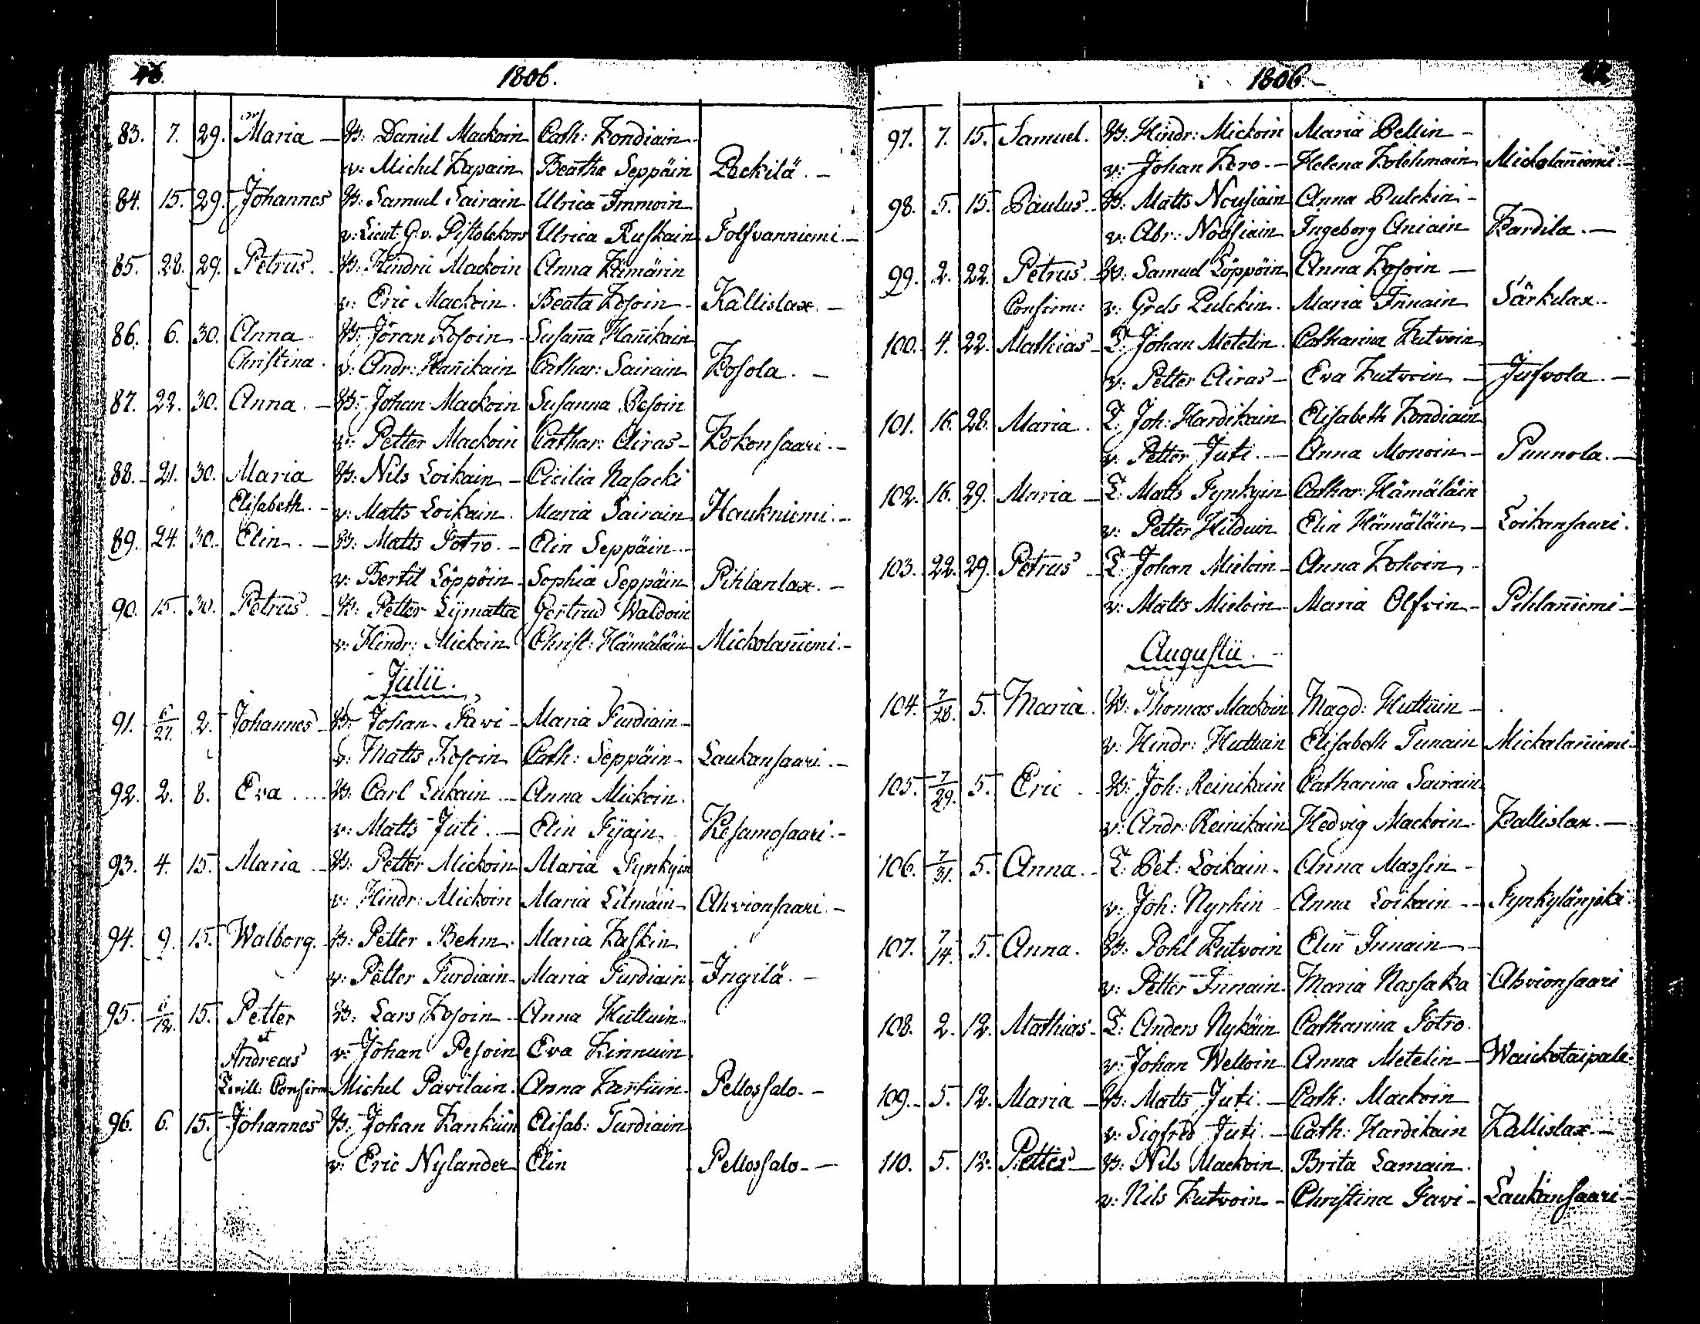 46. 1806.
83. 7. 29. Maria — B: Daniel Mackoin Cath: Kondiain
v: Michel Kapain Beatha Seppäin Peckilä. —
84. 15. 29. Johannes B: Samuel Sairain Ulrica Immoin
v: Lieut. G. v. Pistolekors Ulrica Ruskain Tolfvanniemi. —
85. 28. 29. Petrus. B: Hindric Mackoin Anna Kämärin
v: Eric Mackoin. Beata Kosoin. Kallislax. —
86. 6. 30. Anna B: Jöran Kosoin Susaña Hañikain
Christina. v: Andr: Hañikain Cathar: Sairain Kosola. —
87. 22. 30. Anna. — B: Johan Mackoin Susanna Pesoin
v: Petter Mackoin Cathar: Airas — Kokonsaari. —
88. 21. 30. Maria B: Nils Loikain — Cicilia Nasacki
Elisabeth. — v: Matts Loikain. Maria Sairain Haukniemi. —
89. 24. 30. Elin. — B: Matts Potro. — Elin Seppäin. —
v: Bertil Löppöin Sophia Seppäin Pihlanlax. —
90. 15. 30. Petrus. B: Petter Lijmatta Gertrud Waldoin
v: Hindr: Mickoin Christ: Hämäläin Mickolañiemi. —
Julii.
91. 6/27. 2. Johannes — B: Johan Tavi — Maria Turdiain —
v: Matts Kosoin Cath: Seppäin — Laukansaari. —
92. 2. 8. Eva . . . . B: Carl Lukain — Anna Mickoin.
v: Matts Juti. — Elin Tijain. Kesamosaari. —
93. 4. 15. Maria — B: Petter Mickoin Maria Tynkyin
v: Hindr: Mickoin Maria Litmäin — Ahvionsaari. —
94. 9. 15. Walborg. B: Petter Behm. Maria Kaskin
v: Petter Turdiain Maria Turdiain Ingilä. —
95. 6/12. 15. Petter B: Lars Kosoin — Anna Huttuin
et
Andreas v: Johan Pesoin Eva Kinnuin
Tvill: Confirm Michel Pavilain. Anna Karhuin. Pellossalo. —
96. 6. 15. Johannes B: Johan Kankuin Elisab: Turdiain
v: Eric Nylander Elin Pellossalo. —
1806. —
97. 7. 15. Samuel. B: Hindr: Mickoin Maria Bellin —
v: Johan Kero. — Helena Kolehmain Mickolañiemi. —
98. 5. 15. Paulus — B: Matts Nousiain Anna Pulckin —
v: Abr: Nousiain Ingeborg Aniain Kardila. —
99. 2. 22. Petrus — B: Samuel Löppöin Anna Kosoin —
Confirm: v: Grels Pulckin. Maria Innain Särkilax.
100. 4. 22. Mathias — T: Johan Metelin. Catharina Kutvoin
v: Petter Airas — Eva Kutvoin — Jufvola. —
101. 16. 28. Maria. T: Joh: Hardikain Elisabeth Kondiain
v: Petter Juti. — Anna Monoin — Punnola. —
102. 16. 29. Maria — T: Matts Tynkyin Cathar: Hämäläin
v: Petter Hilduin Elin Hämäläin — Loikansaari.
103. 22. 29. Petrus — T: Johan Mieloin — Anna Kohoin —
v: Matts Mieloin — Maria Olfvin — Pihlañiemi —
Augustii.
104. 7/28. 5. Maria. B: Thomas Mackoin Magd: Huttuin —
v: Hindr: Huttuin Elisabeth Tunain Mickalañiemi —
105. 7/29. 5. Eric B: Joh: Reinikain Catharina Sairain
v: Andr: Reinikain Hedvig Mackoin. Kallislax. —
106. 7/31. 5. Anna. — T: Pet: Loikain. Anna Massin —
v: Joh: Nyrhin — Anna Loikain — Tynkylänjoki.
107. 7/14. 5. Anna. B: Pohl Kutvoin Elin Innain —
v: Petter Innain. Maria Nassaka Ahvionsaari
108. 2. 12. Mathias. T: Anders Nykäin Catharina Potro.
v: Johan Weltoin Anna Metelin — Waickotaipale.
109. 5. 12. Maria — B: Matts Juti — Cath: Mackoin
v: Sigfred Juti — Cath: Hardikain Kallislax. —
110. 5. 12. Petter — B: Nils Mackoin. Brita Lamain.
v: Nils Kutvoin — Christina Tavi — Laukansaari —